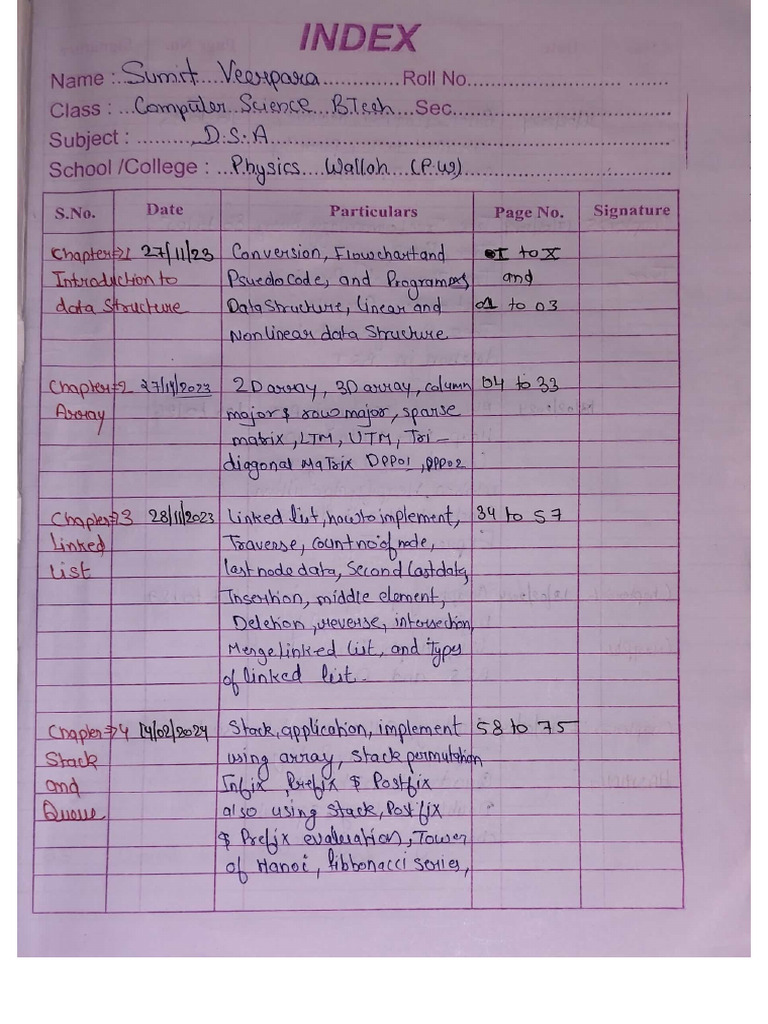 INDEX
Name : Sumit Veerpara Roll No.
Class : Computer Science BTech Sec.
Subject : D.S.A
School /College : Physics Wallah (P.W)
S.No. Date Particulars Page No. Signature
Chapter=>1 27/11/23 Conversion, Flowchart and I to X
Introduction to Psuedo Code, and Programms and
data Structure Data Structure, linear and 01 to 03
Non linear data Structure
Chapter=>2 27/11/2023 2D array, 3D array, column 04 to 33
Array major & row major, sparse
matrix, LTM, UTM, Tri-
diagonal MaTrix DPP01, DPP02
Chapter=>3 28/11/2023 Linked list, how to implement, 34 to 57
Linked Traverse, count no of node,
List last node data, Second last data,
Insertion, middle element,
Deletion, reverse, intersection,
Merge linked list, and types
of linked list.
Chapter=>4 14/02/2024 Stack, application, implement 58 to 75
Stack using array, stack permutation
and Infix, Prefix & Postfix
Queue also using Stack, Postfix
& Prefix evaluration, Tower
of Hanoi, fibbonacci series,